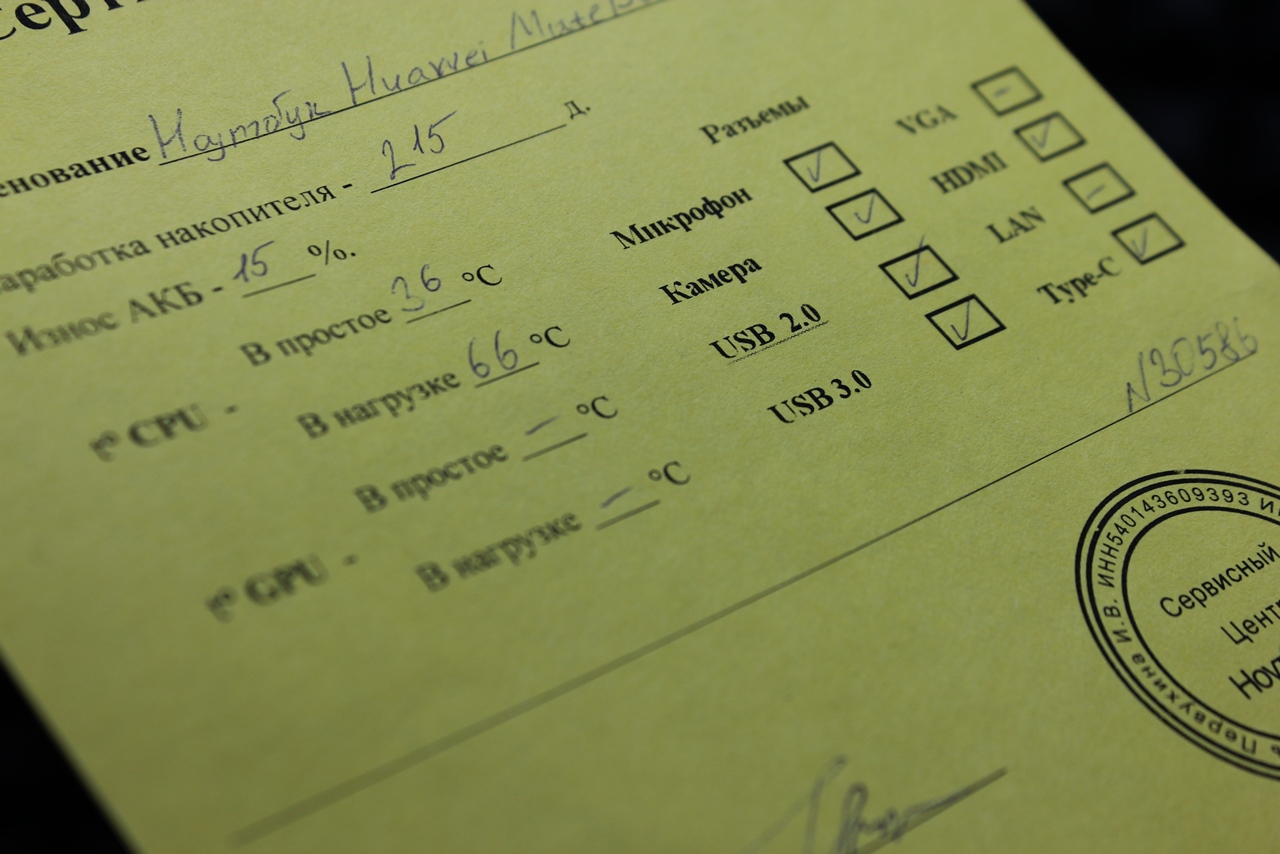 Серти
енование Ноутбук Huawei Mate
аработка накопителя - 215 д.
Износ АКБ - 15 %.
t° CPU - В простое 36 °C
В нагрузке 66 °C
t° GPU - В простое – °C
В нагрузке – °C
Разъемы
Микрофон ✓
Камера ✓
USB 2.0 ✓
USB 3.0 ✓
VGA –
HDMI ✓
LAN –
Type-C ✓
N30586
Первухина И.В. ИНН540143609393
Сервисный
Цент
Ноу